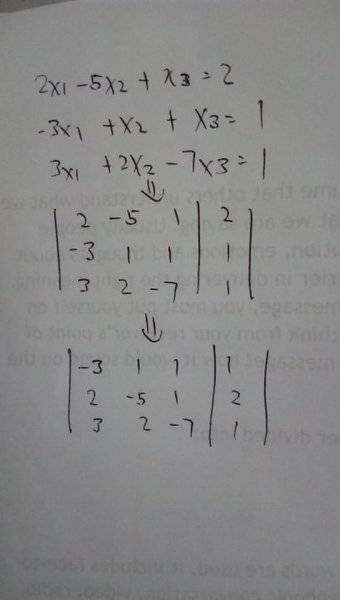 2x1 - 5x2 + x3 = 2
-3x1 + x2 + x3 = 1
3x1 + 2x2 - 7x3 = 1
⇓
| 2 -5 1 | 2 |
| -3 1 1 | 1 |
| 3 2 -7 | 1 |
⇓
| -3 1 1 | 1 |
| 2 -5 1 | 2 |
| 3 2 -7 | 1 |